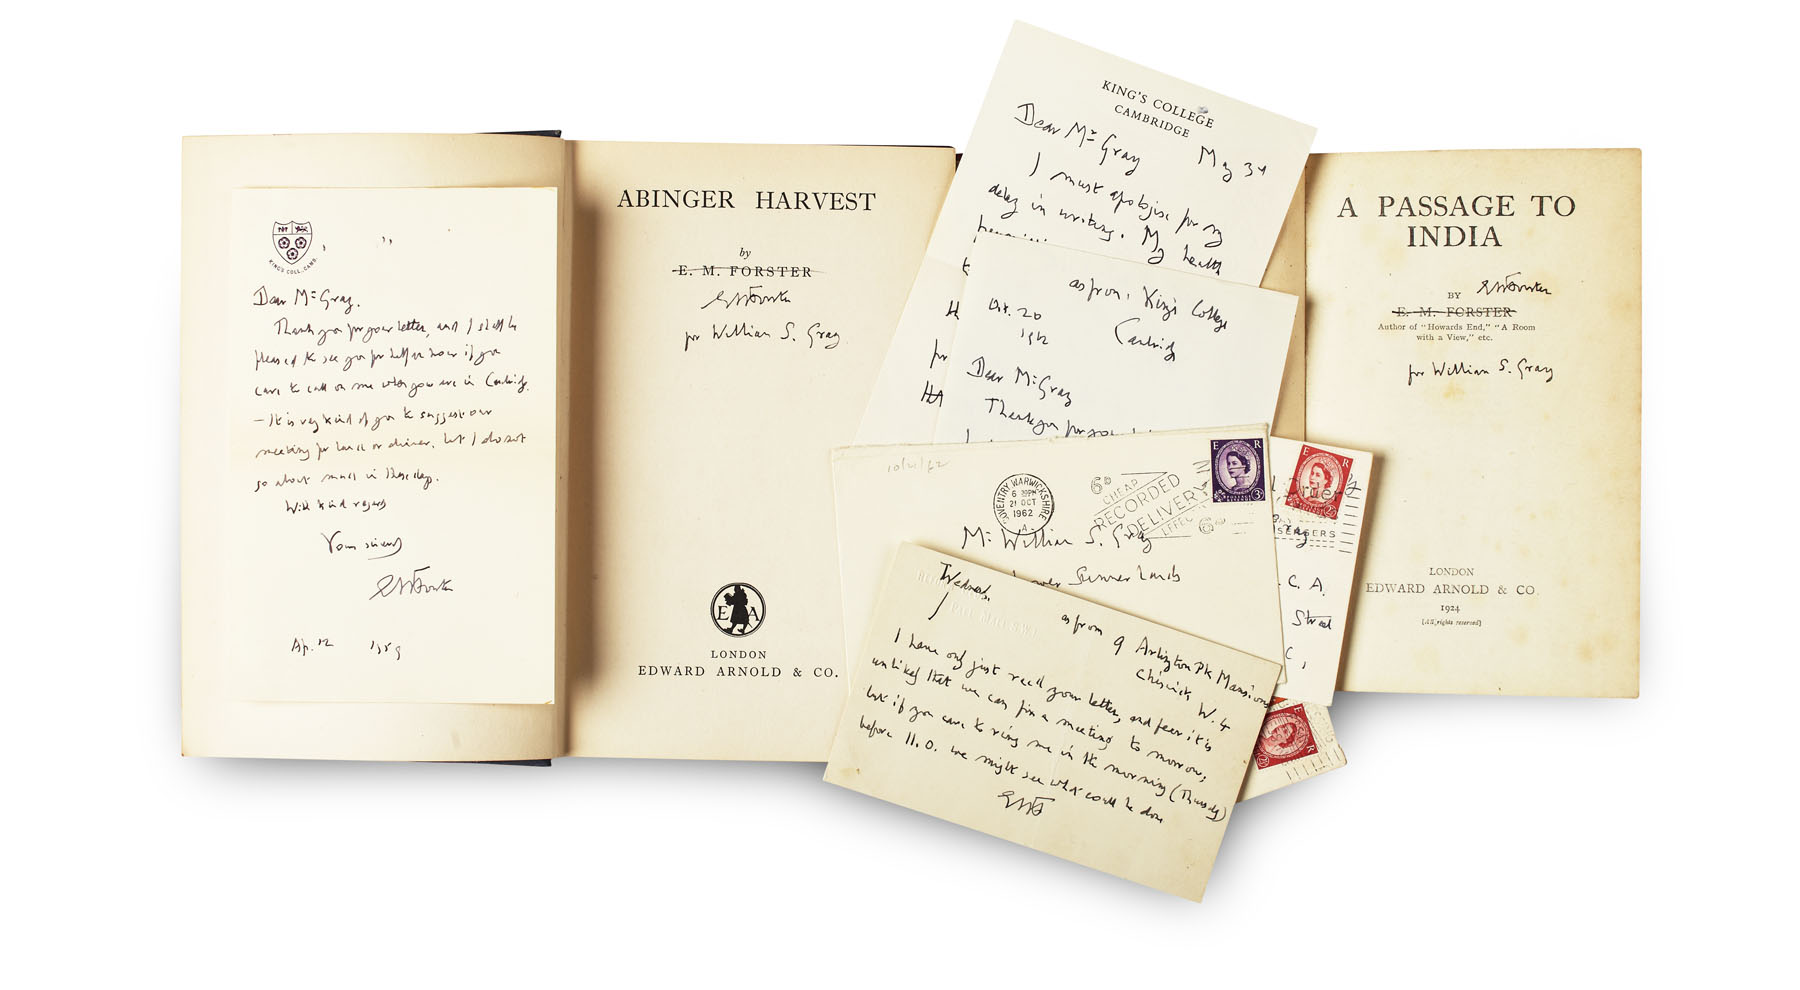 KING'S COLL. CAMB.
Dear Mr Gray.
Thank you for your letter, and I shall be
pleased to see you for half an hour if you
care to call on me when you are in Cambridge.
— It is very kind of you to suggest our
meeting for lunch or dinner, but I do not
go about much in these days.
With kind regards
Yours sincerely
EMForster
Ap. 12 1959
ABINGER HARVEST
by
E. M. FORSTER
EMForster
for William S. Gray.
E A
LONDON
EDWARD ARNOLD & CO.
KING'S COLLEGE
CAMBRIDGE
Dear Mr Gray
I must apologise for my
delay in writing. My health
as from, King's College
Cambridge
Oct. 20
1962
Dear Mr Gray
Thank you for your
10/21/62
COVENTRY WARWICKSHIRE
6 30PM
21 OCT
1962
A
6D
CHEAP
RECORDED
DELIVERY
EFFEC
6D
E R
POSTAGE
REVENUE
3D
Mr William S. Gray
Summerlands
E R
Gray
C. A.
Street
C,
E R
PALL MALL S.W.1.
as from 9 Arlington Pk Mansions
Chiswick, W. 4
I have only just recd your letter, and fear it is
unlikely that we can fix a meeting to morrow,
but if you care to ring me in the morning (Thursday)
before 11.0. we might see what could be done
EMF
A PASSAGE TO
INDIA
BY
EMForster
E. M. FORSTER
Author of "Howards End," "A Room
with a View," etc.
for William S. Gray
LONDON
EDWARD ARNOLD & CO.
1924
[All rights reserved]